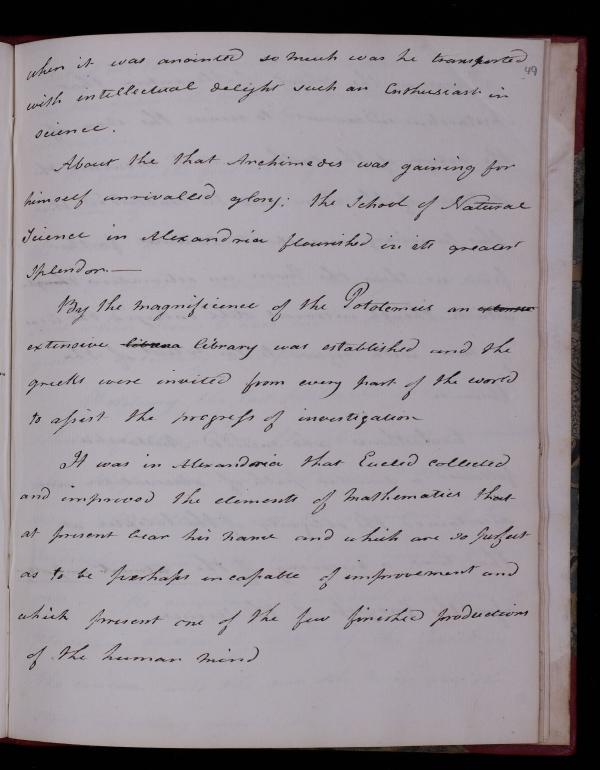 49
when it was anointed so much was he transported
with intellectual delight such an Enthusiast in
science.
About the that Archimedes was gaining for
himself unrivalled glory; the School of Natural
Science in Alexandria flourished in its greatest
splendor.—
By the magnificence of the Pototemies an extensive
extensive librea library was established and the
greeks were invited from every part of the world
to assist the progress of investigation
It was in Alexandria that Eucled collected
and improved the elements of mathematics that
at present bear his name and which are so perfect
as to be perhaps incapable of improvement and
which present one of the few finished productions
of the human mind